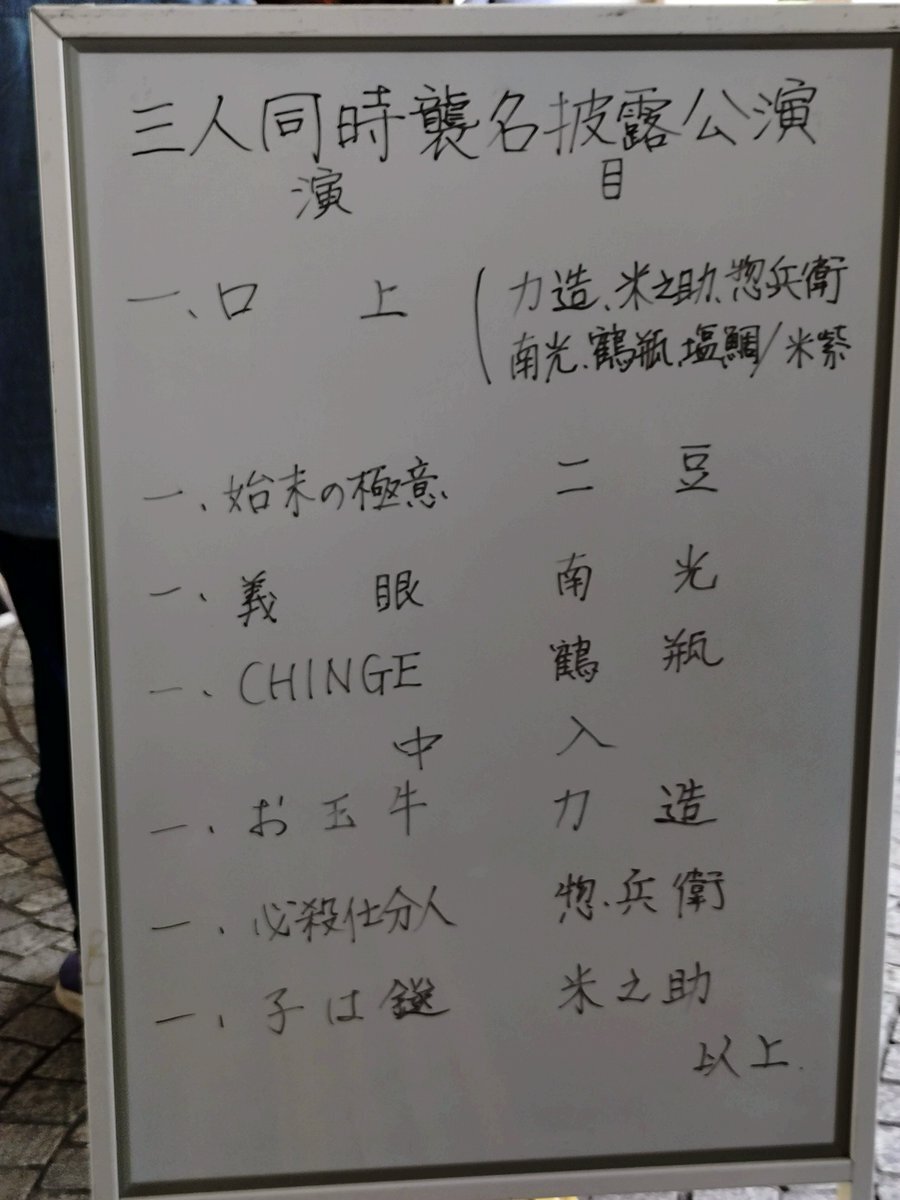 三人同時襲名披露公演
演 目
一、口 上 （力造、米之助、惣兵衛
南光、鶴瓶、塩鯛／米紫
一、始末の極意 二 豆
一、義 眼 南 光
一、CHINGE 鶴 瓶
中 入
一、お玉牛 力 造
一、必殺仕分人 惣兵衛
一、子は鎹 米之助
以上.